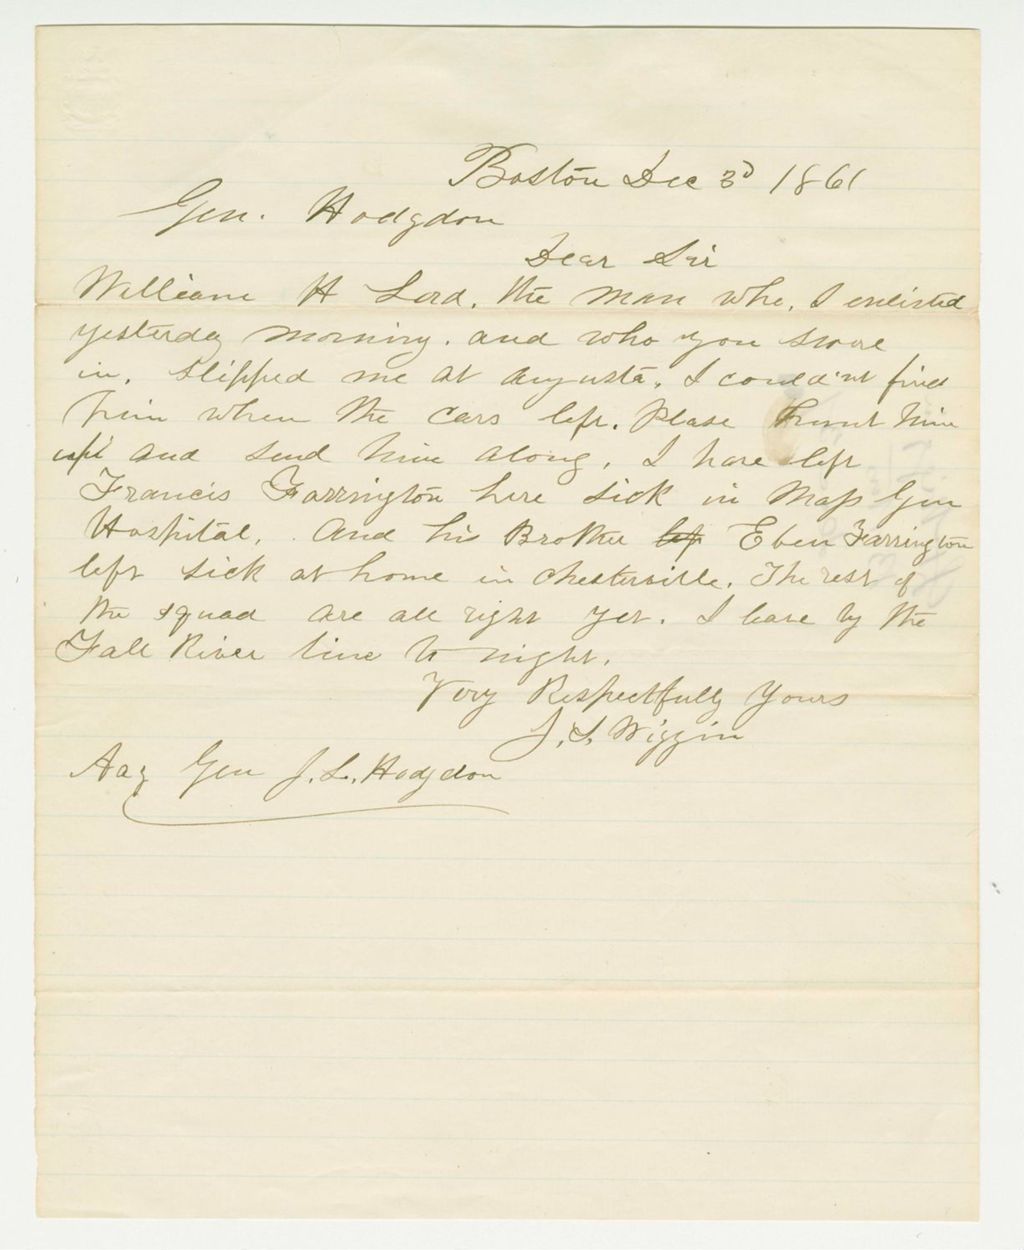 Boston Dec 3d 1861
Gen. Hodgdon
Dear Sir
William H Lord, the man who, I enlisted
yesterday morning, and who you swore
in, slipped me at Augusta, I could'nt find
him when the cars left. Please hunt him
up and send him along, I have left
Francis Farrington here sick in Mass Gen
Hospital, And his Brother left Eben Farrington
left sick at home in Chesterville. The rest of
the squad are all right yet. I leave by the
Fall River line to night.
Very Respectfully Yours
J. S. Wiggin
Adj Gen J. L. Hodgdon